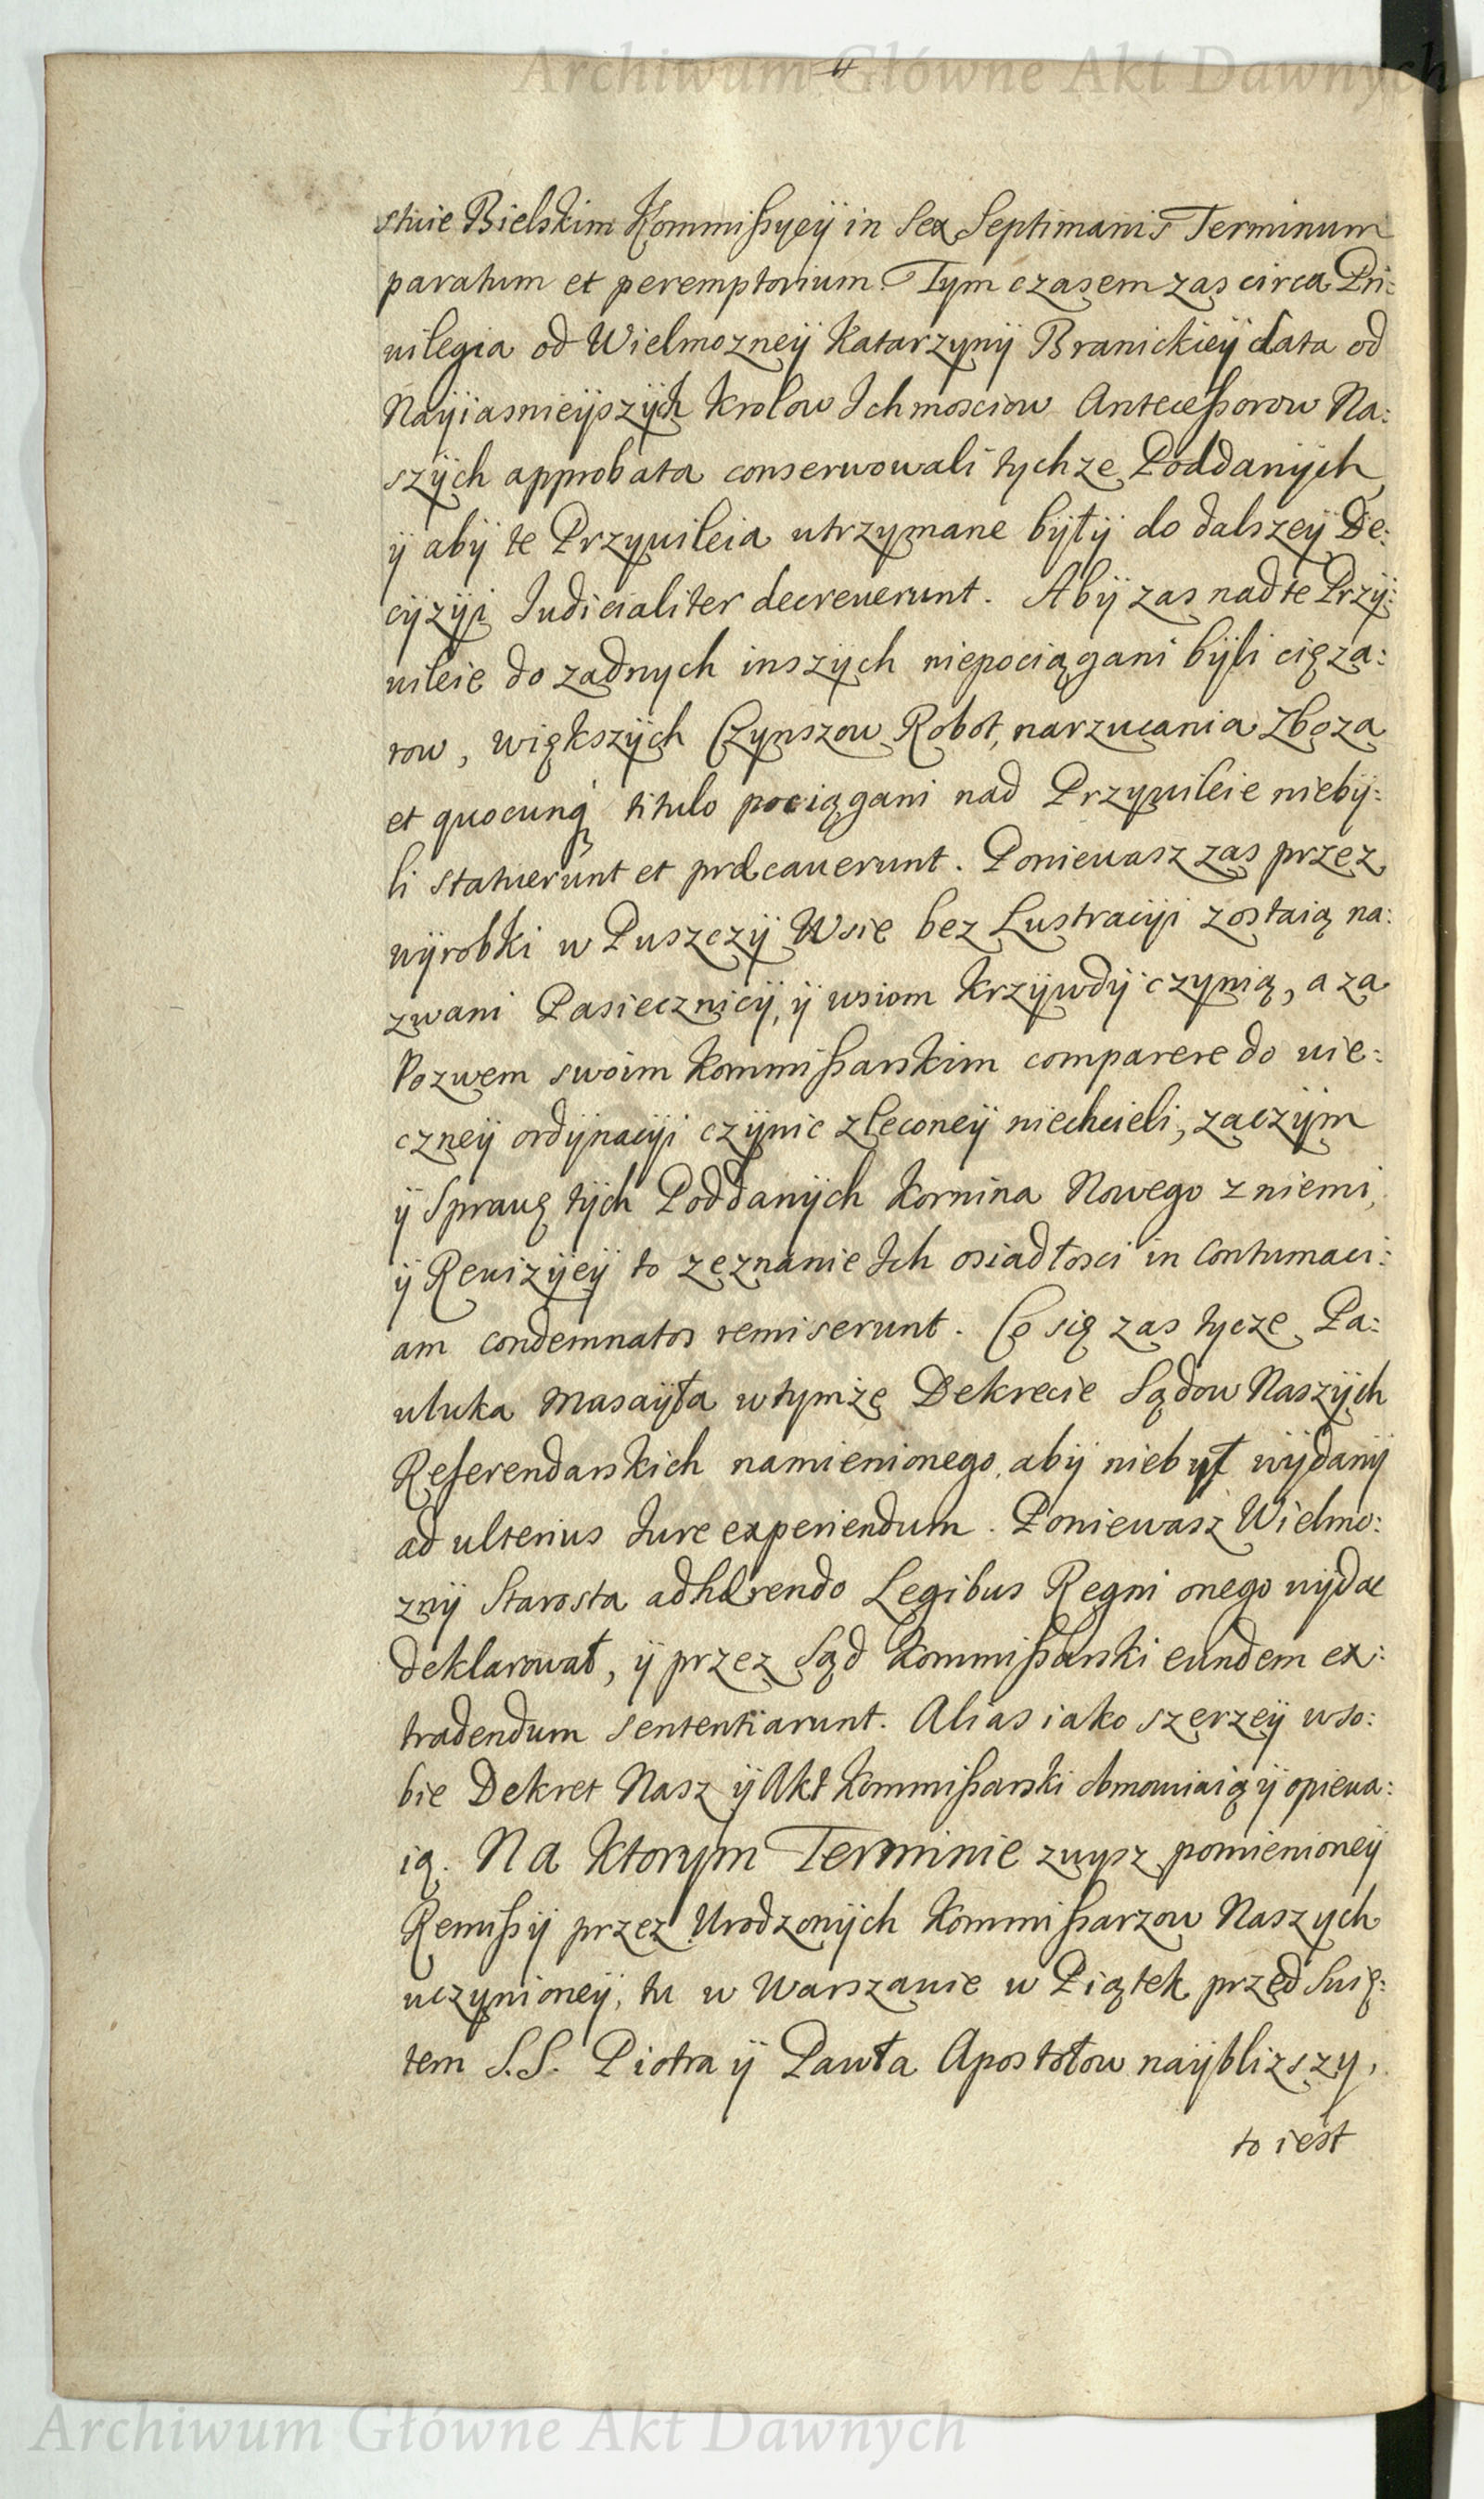 Archiwum Główne Akt Dawnych
stwie Bielskim Kommißyeÿ in Sex Septimanis Terminum
paratum et peremptorium. Tym czasem zas circa Pri:
uilegia od Wielmozneÿ Katarzynÿ Branickieÿ data od
Nayiasnieÿszÿch Krolow Ichmosciow Anteceßorow Na:
szÿch approbata conserwowali tychze Poddanÿch,
ÿ abÿ te Przyuileia utrzymane bÿłÿ do dalszeÿ De:
cÿzÿi Iudicialiter decreuerunt. Abÿ zas nad te Przÿ:
uileie do zadnych inszÿch niepociągani bÿli cięza:
row, większÿch Czynszow Robot, narzucania Zboza
et quocunq́ titulo pociągani nad Przyuileie niebÿ:
li statuerunt et præcauerunt. Poniewasz zas przez
wÿrobki w Puszczÿ Wsie bez Lustracÿi zostaią na:
zwani Pasiecznicÿ, ÿ wsiom Krzÿwdÿ czynią, a za
Pozwem swoim Kommißarskim comparere do wie:
czneÿ ordÿnacÿi czÿnic zleconeÿ niechcieli, zaczÿm
ÿ Sprawę tÿch Poddanÿch Kornina Nowego z niemi,
ÿ Rewizÿeÿ to zeznanie Ich osiadłosci in Contumaci:
am condemnatos remiserunt. Co się zas tycze Pa:
wluka Masaÿła w tymże Dekrecie Sądow Naszÿch
Referendarskich namienionego, abÿ niebył wÿdanÿ
ad ulterius Iure experiendum. Poniewasz Wielmo:
znÿ Starosta adhærendo Legibus Regni onego wÿdac
deklarował, ÿ przez Sąd Kommißarski eundem ex:
tradendum sententiarunt. Alias iako szerzeÿ w so:
bie Dekret Nasz ÿ Akt Kommißarski obmawiaią ÿ opiewa:
ią. Na Ktorym Terminie zwysz pomienioneÿ
Remißÿ przez Urodzonÿch Kommißarzow Naszych
uczynioneÿ, tu w Warszawie w Piątek przed Swię:
tem S.S. Piotra ÿ Pawła Apostołow naÿblizszy,
to iest
Archiwum Główne Akt Dawnych